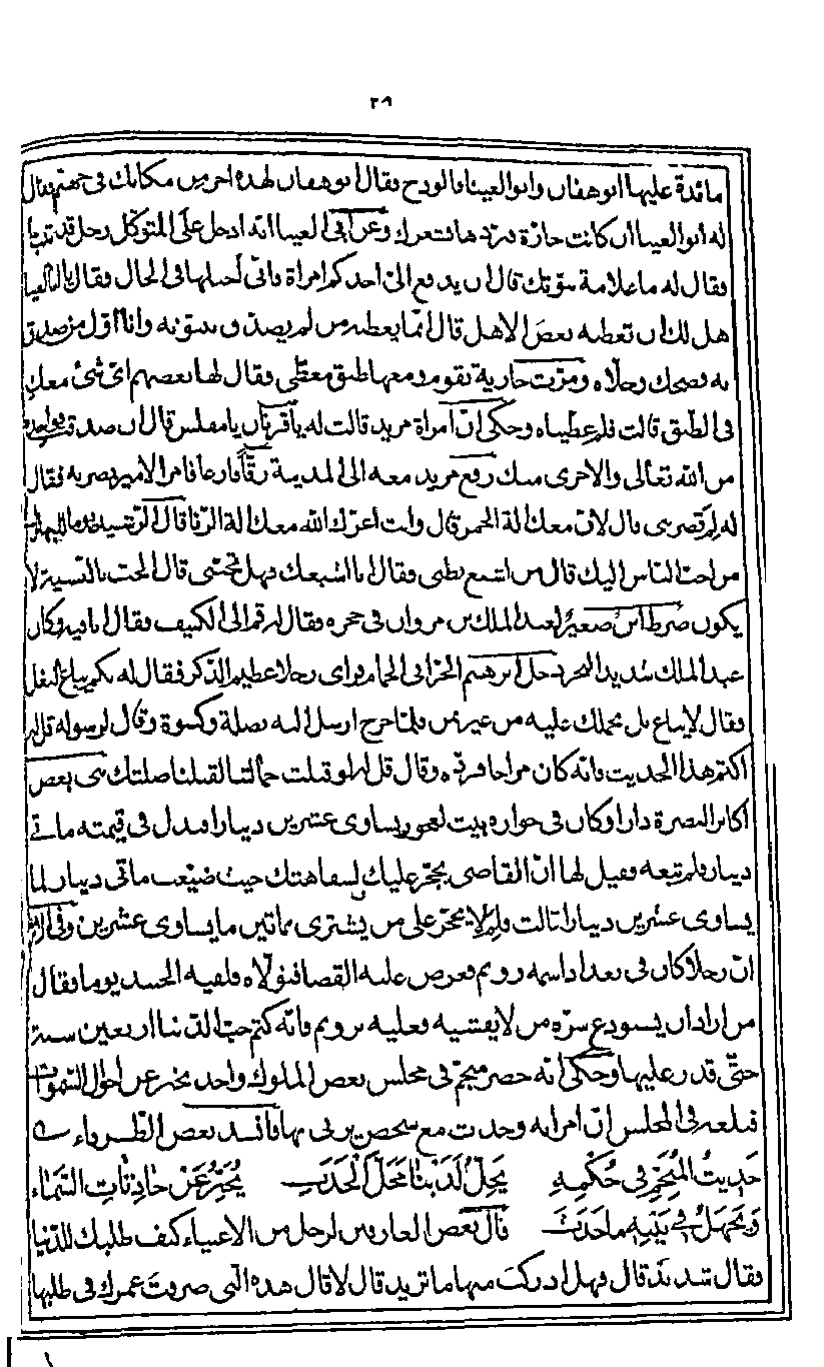 ٢٩
مائدة عليها ابوهفان وابوالعينا فالوذج فقال ابوهفان لهذه احر من مكانك فى جهنم فقال
له ابوالعينا ان كانت حارة فبردها بشعرك وعن ابى العينا انه ادخل على المتوكل رجل قد تنبأ
فقال له ما علامة نبوتك قال ان يدفع الىّ احدكم امراة فانى أحبلها فى الحال فقال يا ابا العينا
هل لك ان تعطيه بعض الاهل قال انما يعطيه من لم يصدق بنبوته وانا اول من صدق
به فضحك وخلاه ومرت جارية بقوم ومعها طبق مغطى فقال لها بعضهم اى شئ معك
فى الطبق قالت فلم غطيناه وحكى ان امراة مزيد قالت له يا قرنان يا مفلس قال ان صدقت فواحدة
من الله تعالى والاخرى منك رفع مزيد معه الى المدينة زقا فارغا فامر الامير بضربه فقال
له لم تضربنى قال لان معك الة الخمر قال وانت اعزك الله معك الة الزنا قال الرشيد يوما
من احب الناس اليك قال من اشبع بطنى فقال انا اشبعك فهل تحبنى قال الحب بالنسيئة لا
يكون ضرط ابن صغير لعبد الملك بن مروان فى حجره فقال له قم الى الكنيف فقال انا فيه وكان
عبد الملك شديد البخر دخل ابرهيم الحرانى الحمام فراى رجلا عظيم الذكر فقال له بكم يباع البغل
فقال لا يباع بل نحملك عليه من غير ثمن فلما خرج ارسل اليه بصلة وكسوة وقال لرسوله قل له
اكتم هذا الحديث فانه كان مزاحا فرده وقال قل له لو قبلت حملاننا لقبلنا صلتك بنى بعض
اكابر البصرة دارا وكان فى جواره بيت لعجوز يساوى عشرين دينارا فبذل فى قيمته ماتى
دينار فلم تبعه فقيل لها ان القاضى يحجر عليك لسفاهتك حيث ضيعت ماتى دينار لما
يساوى عشرين دينارا قالت فلم لا يحجر على من يشترى بماتين ما يساوى عشرين
ان رجلا كان فى بغداد اسمه رويم فعرض عليه القضا فتولاه فلقيه الجنيد يوما فقال
من اراد ان يستودع سره من لا يفشيه فعليه برويم فانه كتم حب الدنيا اربعين سنة
حتى قدر عليها وحكى انه حضر منجم فى مجلس بعض الملوك واخذ يخبر عن احوال السموات
فبلغه فى المجلس ان امراته وجدت مع شخص يزنى بها فانشد بعض الظرفاء
حَدِيثُ المُنَجِّمِ فى حُكْمِهِ يَحِلُّ لَدَيْنَا مَحَلَّ الحَدَثِ يُخَبِّرُ عَنْ حَادِثَاتِ السَّمَاءِ
وَيَجْهَلُ فِى بَيْتِهِ مَا حَدَثَ قال بعض العارفين لرجل من الاغنياء كيف طلبك للدنيا
فقال شديد قال فهل ادركت منها ما تريد قال لا قال هذه التى صرفت عمرك فى طلبها